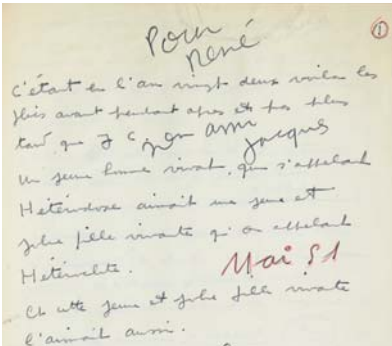 Pour
René
①
C'était en l'an vingt deux
fois avant pendant après et pas plus
tard que J C son ami
Jacques
Un jeune homme vivant, qui s'appelait
Hétérodoxe aimait une jeune et
jolie fille vivante qu'on appelait
Hétéroclite.
Mai 51
Et cette jeune et jolie fille vivante
l'aimait aussi.